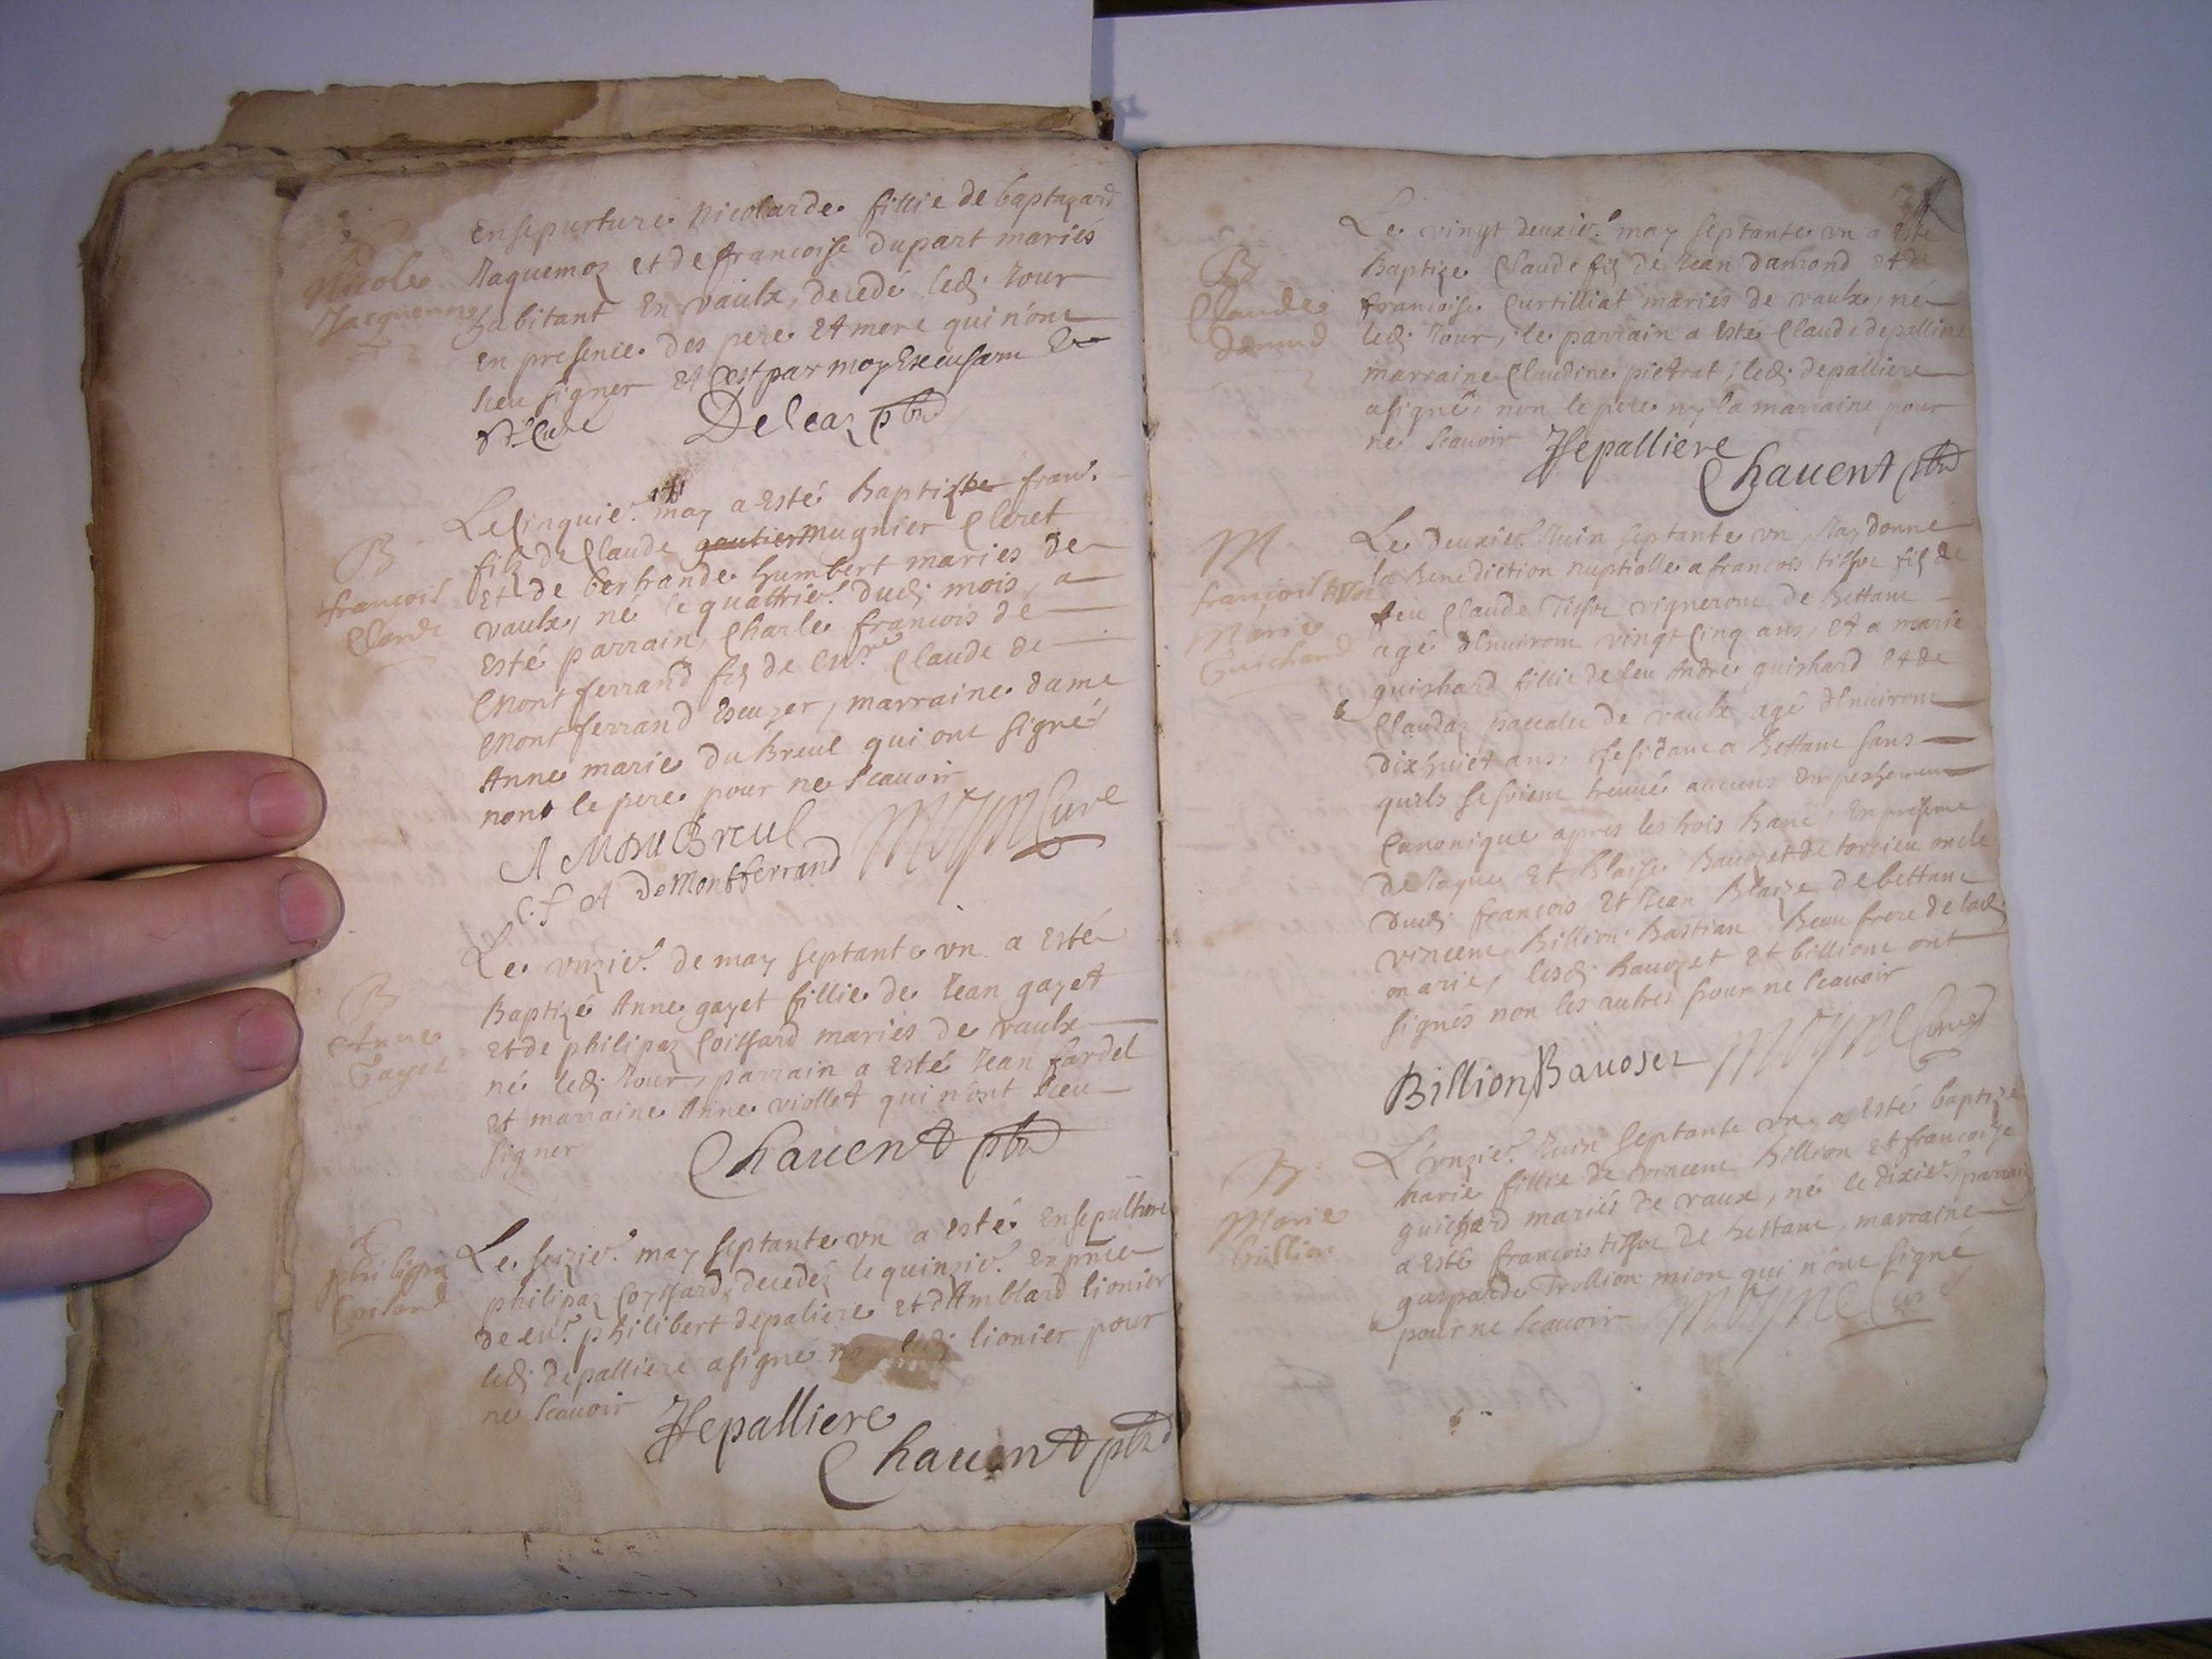 Nicole
Jacquemoz
ensepurture Nicolarde fillie de baptazard
Jaquemoz et de francoise dupart mariés
habitant en vaulx, decedé ledi. Jour
en presence des pere et mere qui n'ont
sceu signer et est par moy
Sr Curé Deleaz pbr
B
francois
Claude
Le cinquie. may a esté Baptisé fran.
filz de Claude Mugnier Cleret
et de bertrande humbert mariés de
vaulx, né le quattrie. dudi mois, a
esté parrain, Charle francois de
Montferrand filz de Claude de
Montferrand Escuyer, marraine dame
Anne marie du Breul qui ont signé
non le pere pour ne scauoir
A M Du Breul
C. f A De Montferrand Moyne Curé
B
Anne
Gayet
Le vnzie. de may septante vn a esté
Baptizé Anne gayet fillie de Jean gayet
et de philipaz Coissard mariés de vaulx
né ledi Jour, parrain a esté Jean fardel
et marraine Anne viollet qui n'ont sceu
signer Chauent pbr
philippa
Coisard
Le seizie. may septante vn a esté Ensepulture
philipaz Coyssard, decedez le quinzie. en pnce
de philibert depaliere et d'Amblard lionier
ledi depalliere a signé non ledi lionier pour
ne scauoir Depalliere
Chauent pbr
B
Claude
Damond
Le vingt deuxie. may septante vn a esté
Baptize Claude filz de Jean damond et de
francoise Curtilliat mariés de vaulx, né
ledi Jour, le parrain a esté Claude depalliere
marraine Claudine pietrat; ledi depalliere
a signé, non le pere ny la marraine pour
ne scauoir Depalliere
Chauent pbr
M
francois
Marie
Guichard
Le deuxie. Juin septante vn, Jay donné
la Benediction nuptialle a francois tissot filz de
feu Claude Tissot vigneront de Bettant
agé d'Enuiront vingt cinq ans, et a marie
guishard fillie de feu Andre guishard et de
Claudaz de vaulx agé d'Enuiront
dixhuict ans, residant a Bettant sans
quils se soient treuué aucuns Empeshement
Canonique apres les trois banc, En presence
de Jaque et Blaise Bauozet de torcieu oncle
dudi francois et Jean Blaize de bettant
vincent Billion Bastian Beau frere de ladi
marie, lesdi bauozet et billiont ont
signés non les autres pour ne scauoir
Billion Bauoset Moyne Curé
B
Marie
billion
L'vnzie. Juin septante vn, a esté baptize
marie fillie de vincent Billion et francoize
guichard mariés de vaux, né le dixie., parrain
a esté francois tissot de bettant, marraine
gasparde Trollion mion qui n'ont signé
pour ne scauoir Moyne Curé